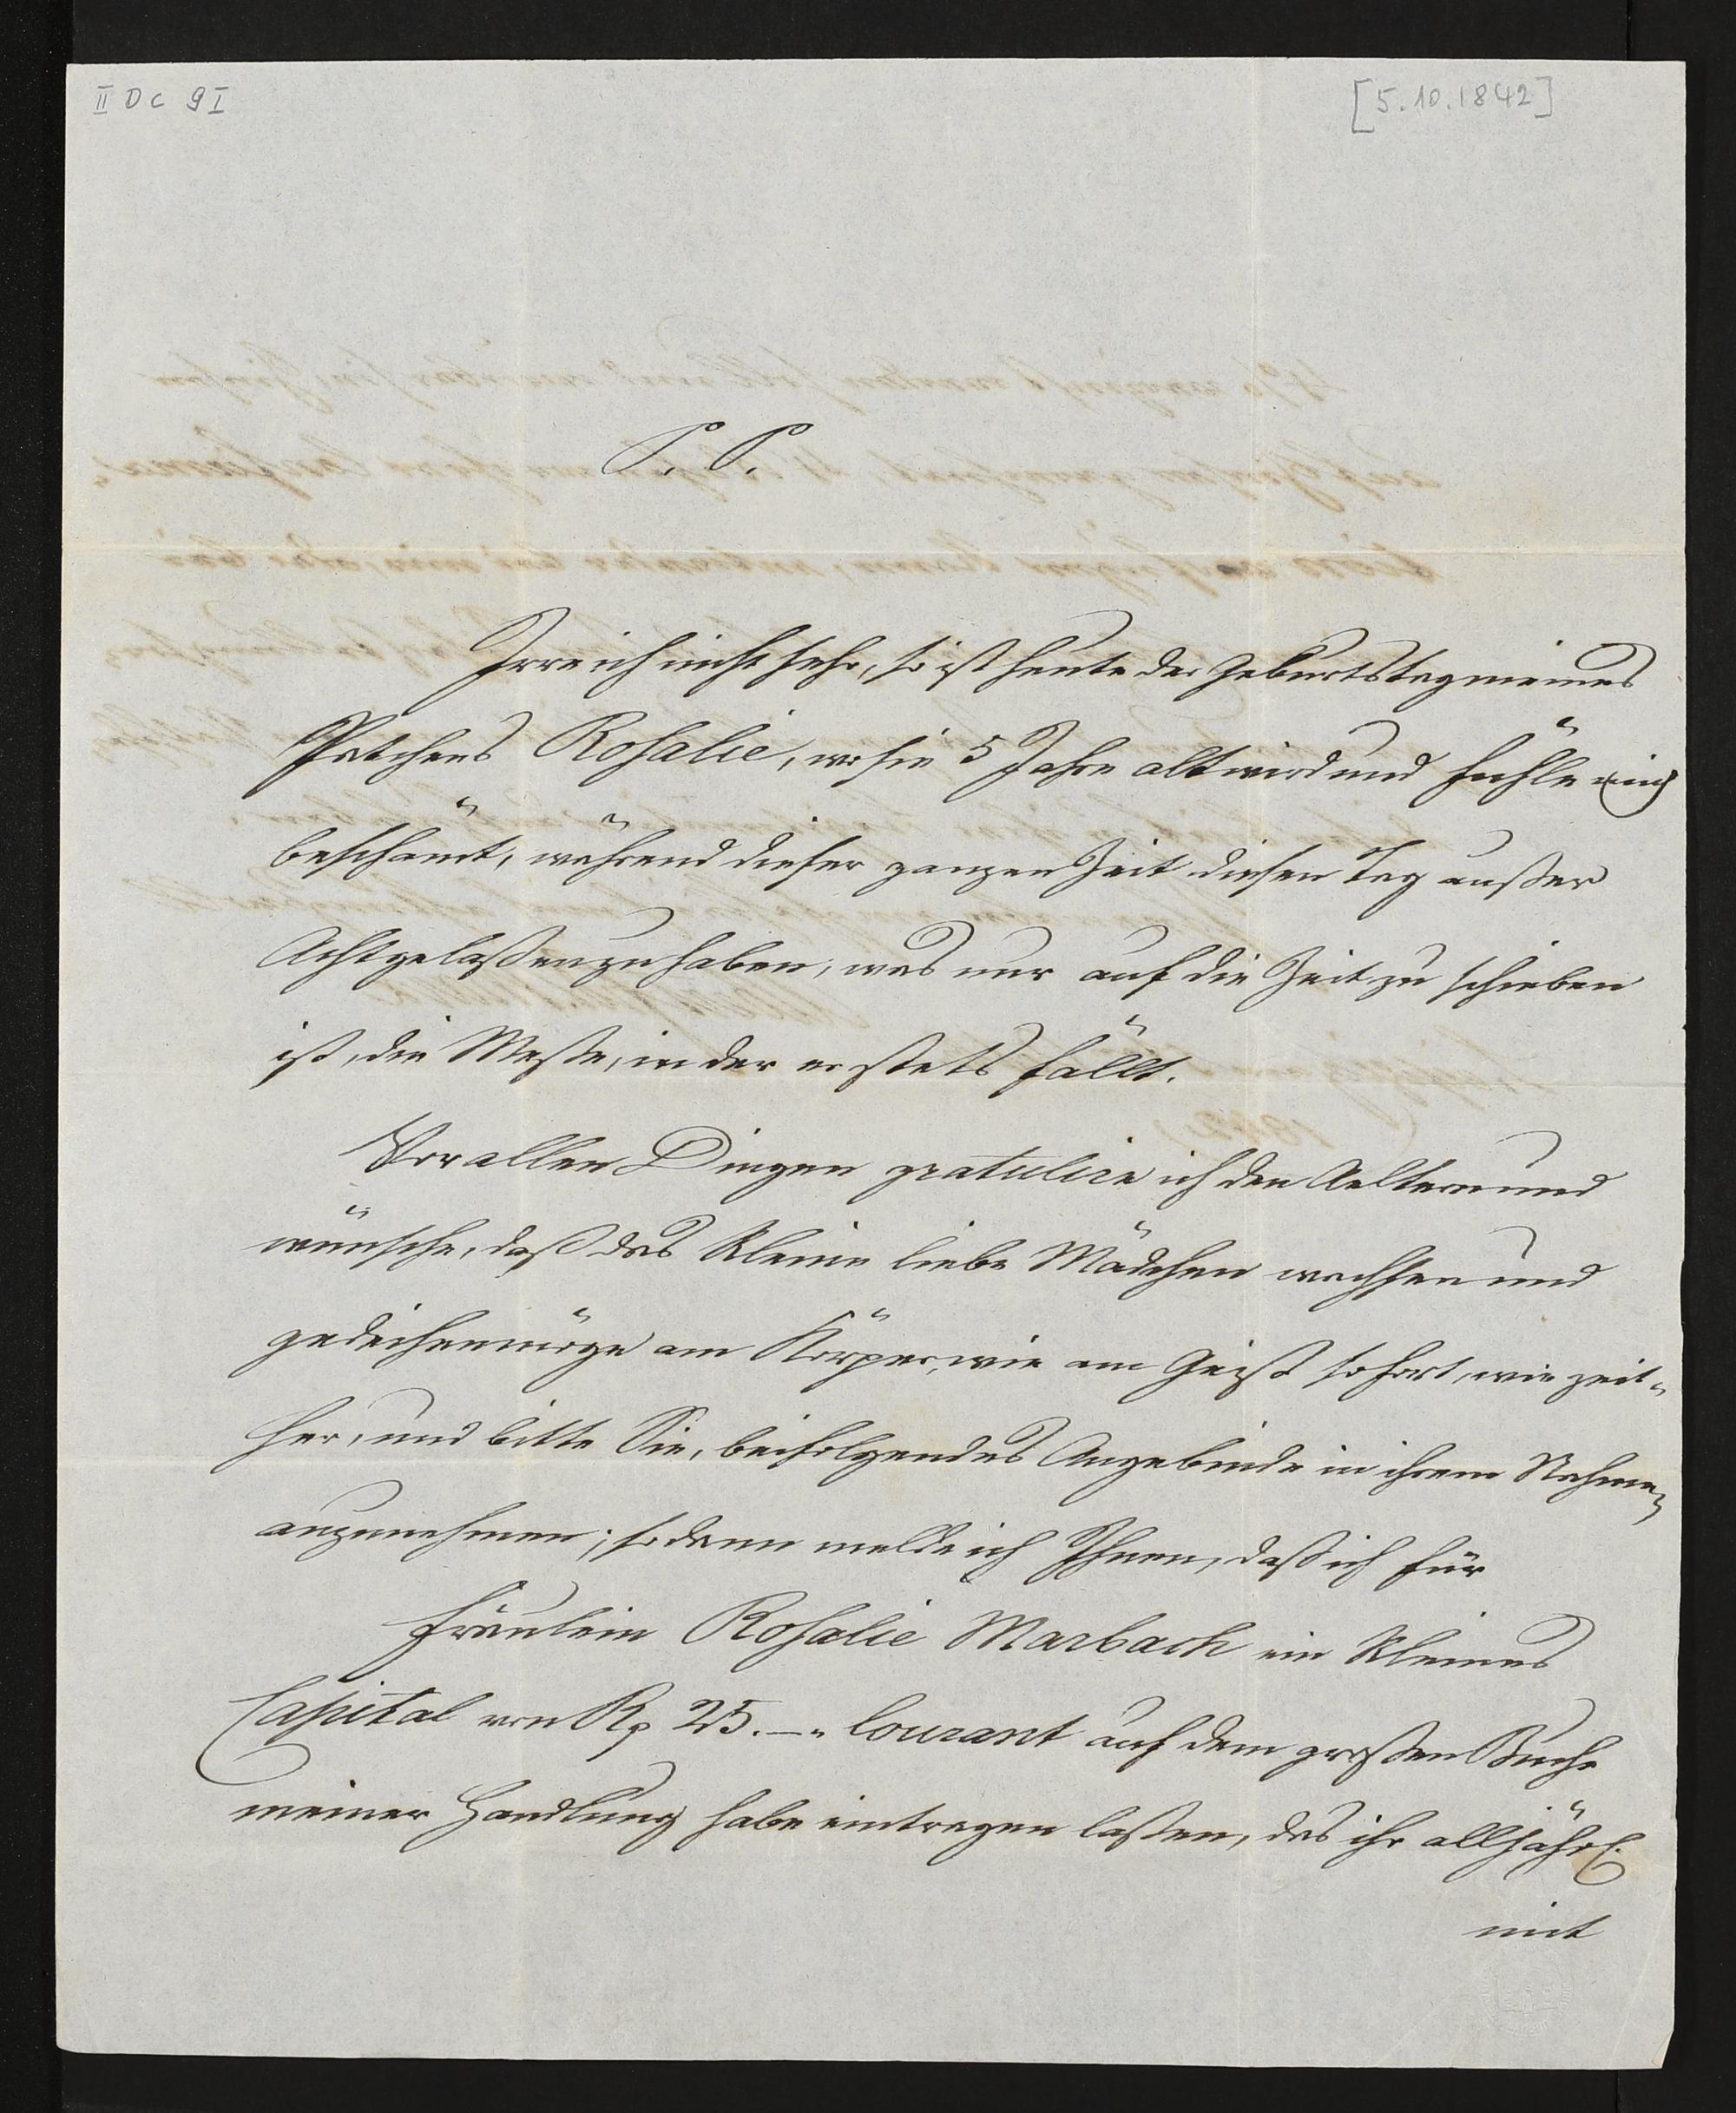 II D c 9 I
[5.10.1842]
P. P.
Irre ich nicht sehr, so ist heute der Geburtstag meines
Patchens Rosalie, wo sie 5 Jahre alt wird und fühle mich
beschämt, während dieser ganzen Zeit diesen Tag außer
Acht gelaßen zu haben, was nur auf die Zeit zu schieben
ist, die Meße, in der er stets fällt.
Vor allen Dingen gratulire ich den Aeltern und
wünsche, daß das kleine liebe Mädchen wachsen und
gedeihen möge am Körper, wie am Geist so fort, wie zeit-
her, und bitte Sie, beifolgendes Angebinde in ihrem Nahmen
anzunehmen; sodann melde ich Ihnen, daß ich für
Fräulein Rosalie Marbach ein kleines
Capital von Rp 25.–„ Courant auf dem großen Buche
meiner Handlung habe eintragen laßen, das ihr alljährl.
mit